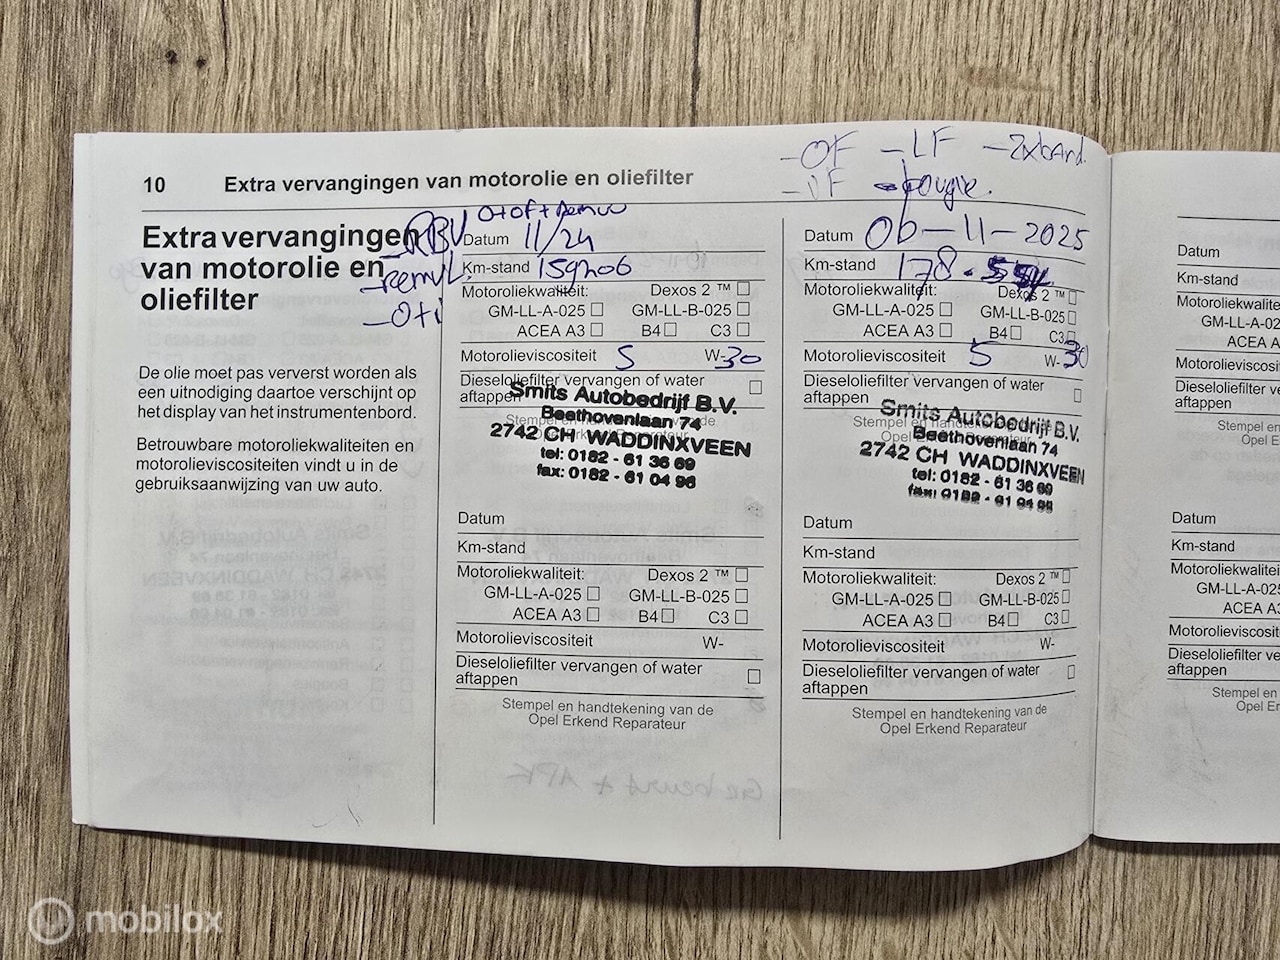 -OF -LF -2xband.
-IF -bougie.
10 Extra vervangingen van motorolie en oliefilter
Extra vervangingen
van motorolie en
oliefilter
-RBV
-remvl.
De olie moet pas ververst worden als
een uitnodiging daartoe verschijnt op
het display van het instrumentenbord.
Betrouwbare motoroliekwaliteiten en
motorolieviscositeiten vindt u in de
gebruiksaanwijzing van uw auto.
Datum 11/24
Km-stand 159206
Motoroliekwaliteit: Dexos 2 ™ □
GM-LL-A-025 □ GM-LL-B-025 □
ACEA A3 □ B4 □ C3 □
Motorolieviscositeit 5 W-30
Dieseloliefilter vervangen of water
aftappen □
Smits Autobedrijf B.V.
Beethovenlaan 74
2742 CH WADDINXVEEN
tel: 0182 - 61 36 69
fax: 0182 - 61 04 96
Datum
Km-stand
Motoroliekwaliteit: Dexos 2 ™ □
GM-LL-A-025 □ GM-LL-B-025 □
ACEA A3 □ B4 □ C3 □
Motorolieviscositeit W-
Dieseloliefilter vervangen of water
aftappen □
Stempel en handtekening van de
Opel Erkend Reparateur
Datum 06-11-2025
Km-stand 178.
Motoroliekwaliteit: Dexos 2 ™ □
GM-LL-A-025 □ GM-LL-B-025 □
ACEA A3 □ B4 □ C3 □
Motorolieviscositeit 5 W-30
Dieseloliefilter vervangen of water
aftappen □
Smits Autobedrijf B.V.
Beethovenlaan 74
2742 CH WADDINXVEEN
tel: 0182 - 61 36 69
fax: 0182 - 61 04 96
Datum
Km-stand
Motoroliekwaliteit: Dexos 2 ™ □
GM-LL-A-025 □ GM-LL-B-025 □
ACEA A3 □ B4 □ C3 □
Motorolieviscositeit W-
Dieseloliefilter vervangen of water
aftappen □
Stempel en handtekening van de
Opel Erkend Reparateur
Datum
Km-stand
Motoroliekwalite
GM-LL-A-02
ACEA A
Motorolieviscosit
Dieseloliefilter ve
aftappen
Stempel en
Opel E
Datum
Km-stand
Motoroliekwalit
GM-LL-A-02
ACEA A3
Motorolieviscosit
Dieseloliefilter ve
aftappen
Stempel en
Opel Er
mobilox